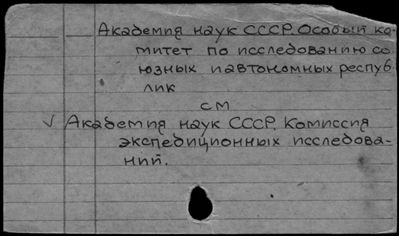 Академия наук СССР. Особый ко-
митет по исследованию со
юзных и автономных респуб
лик
см
√ Академия наук СССР. Комиссия
экспедиционных исследова-
ний.